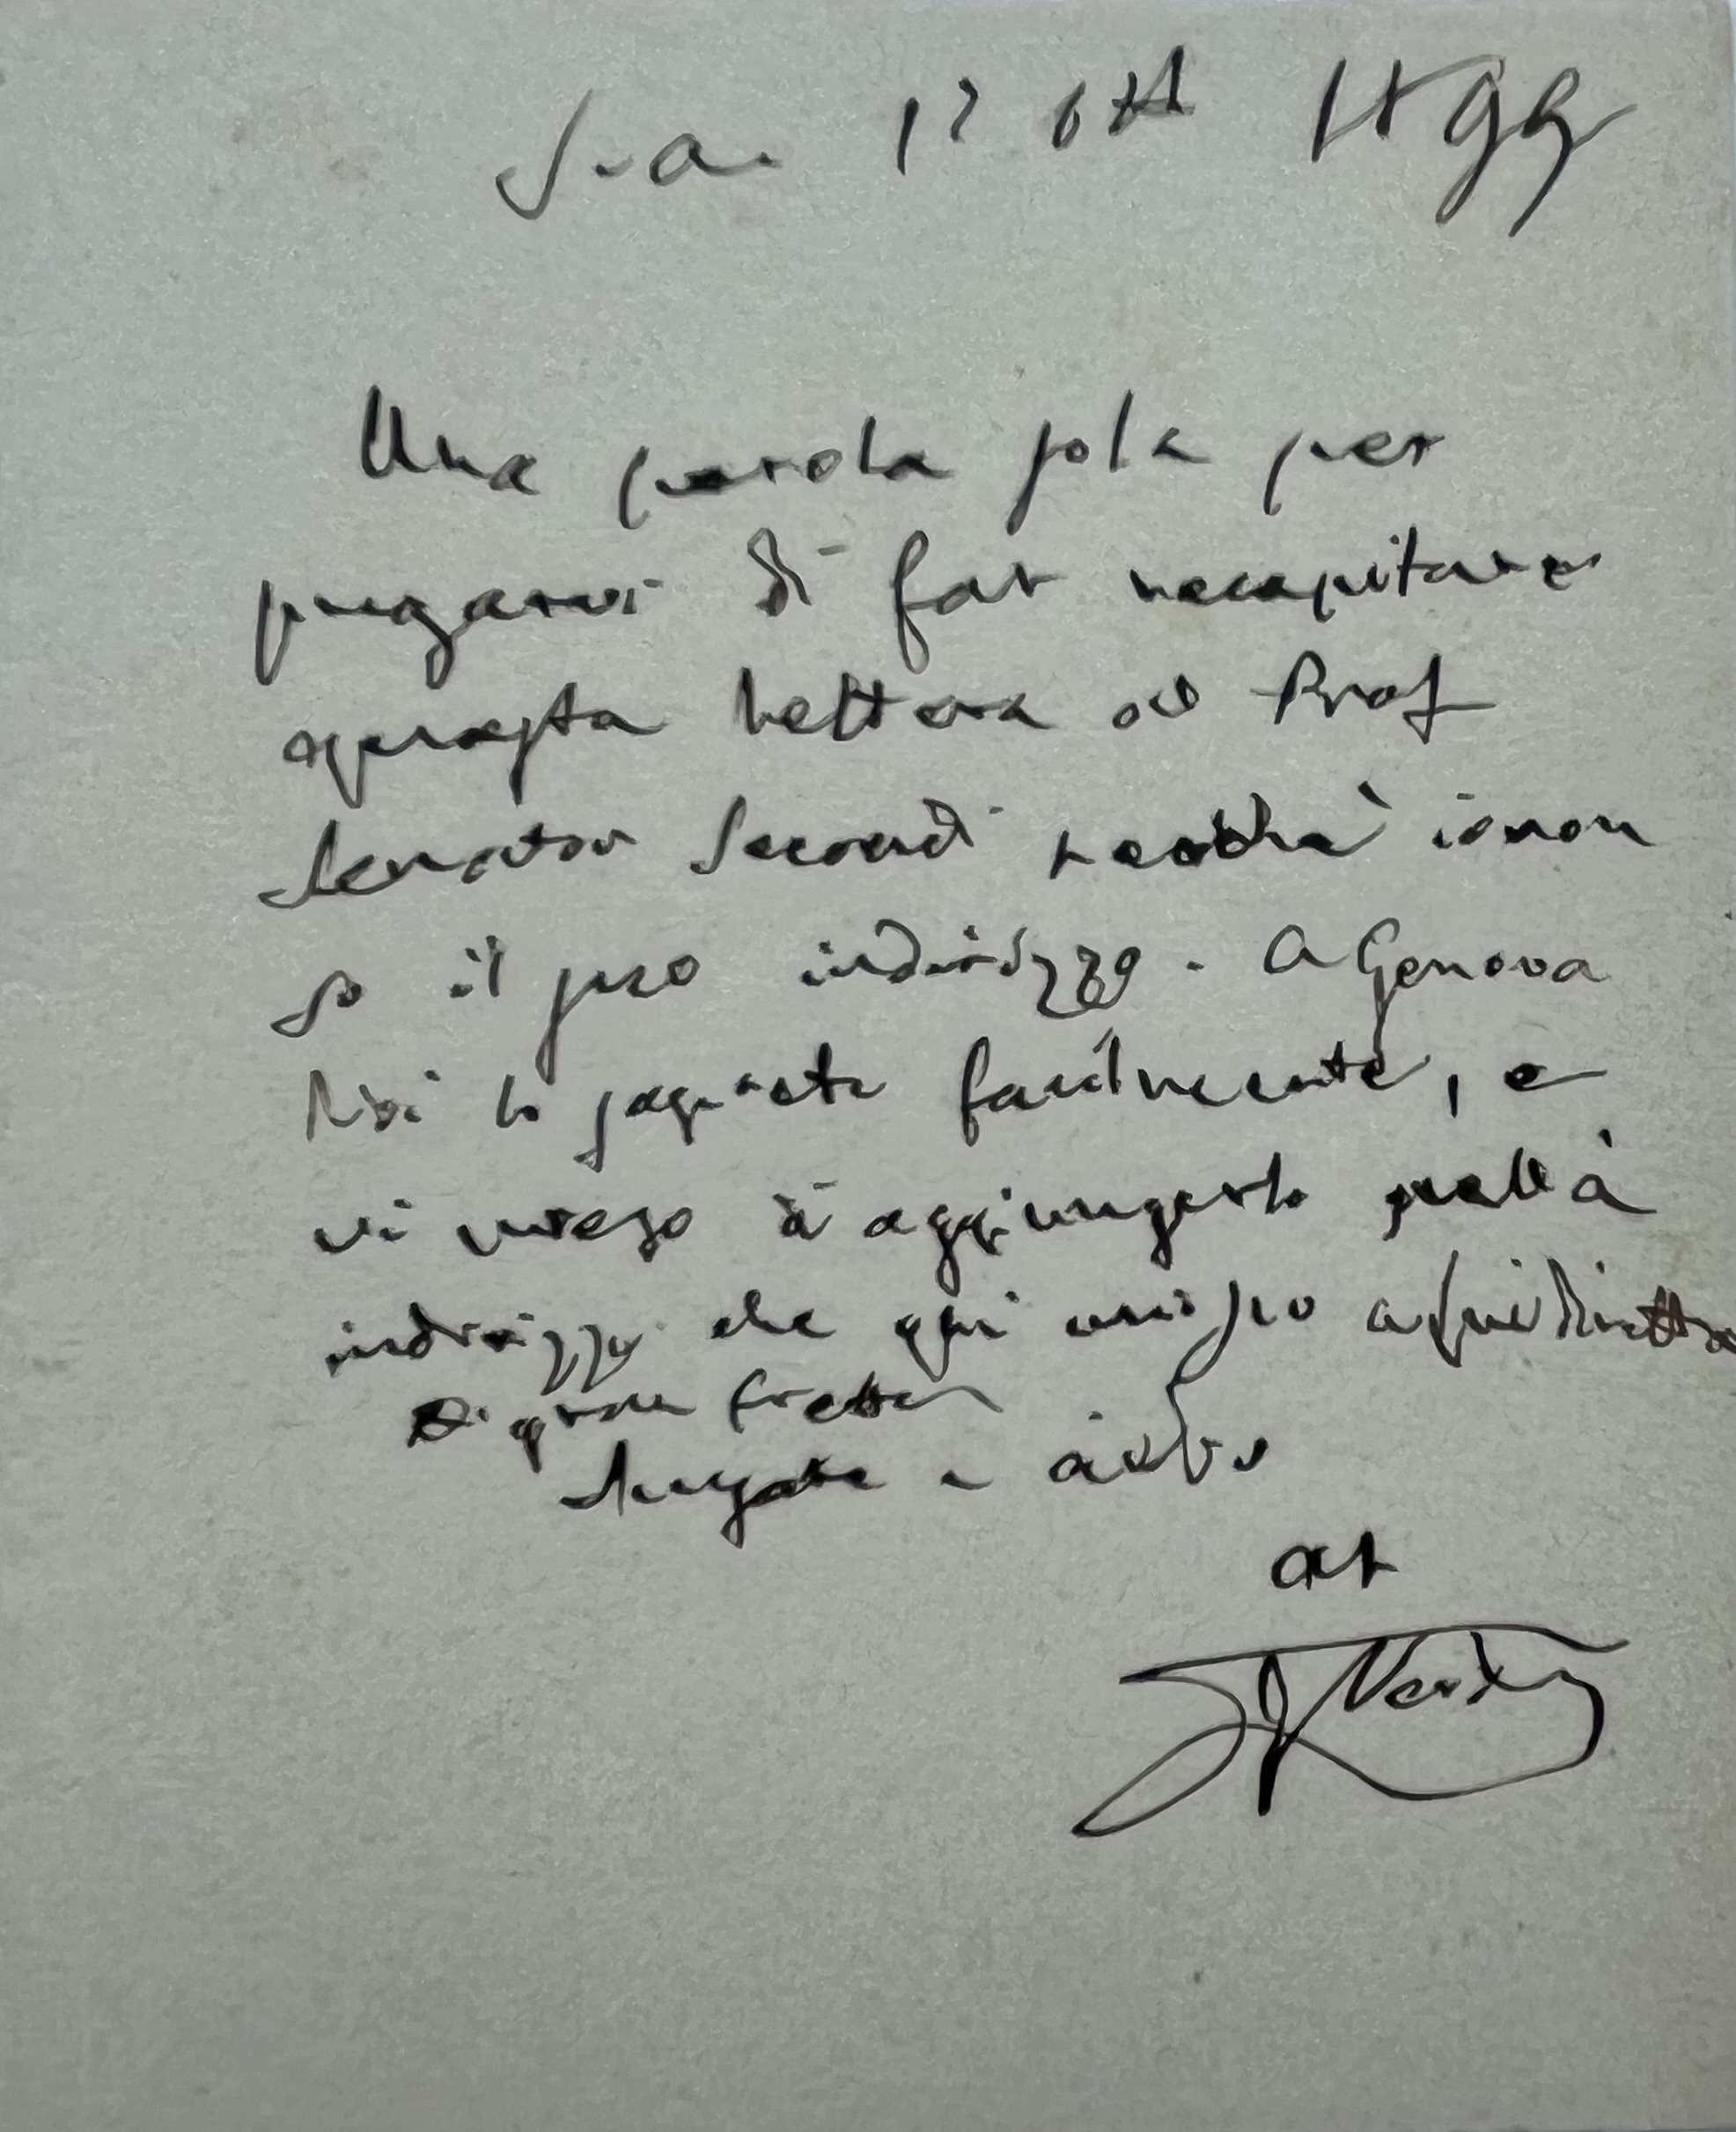 S. A. 12 Ott 1899
Una parola sola per
pregarvi di far recapitare
questa lettera al Prof
Senator Secondi io non
so il suo indirizzo. A Genova
Voi lo saprete facilmente, e
vi prego d'aggiungerlo
indirizzo che qui unisco
Di gran fretta
e addio
aff
G Verdi